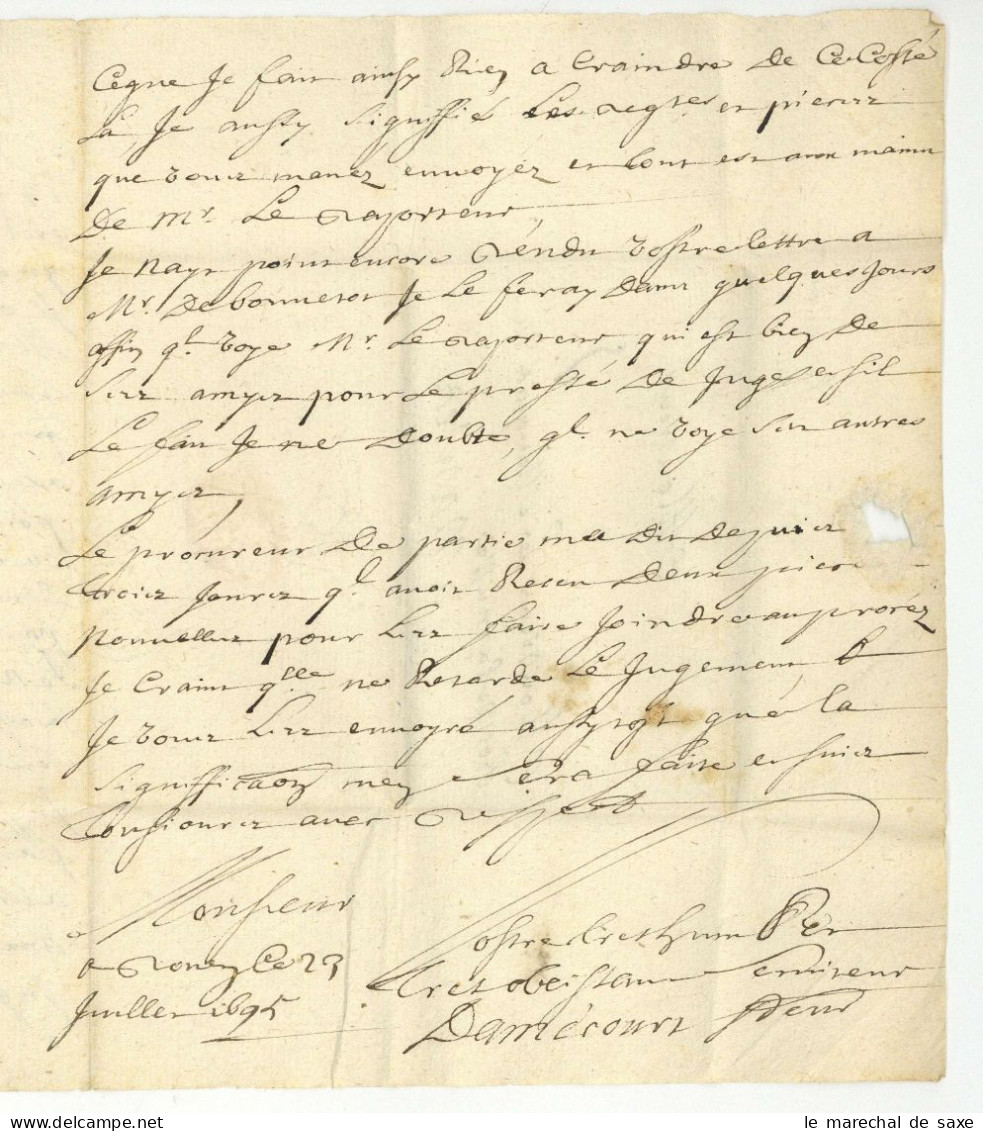 Ceque Je fais ainsy Rien a Craindre De Ce Costé
La, Je aussy signiffié Les et pieces
que vous mavez envoyéz et tout est aux mains
De Mr. Le raporteur,
Je nays point encore rendu vostre lettre a
Mr. De bonnetot Je Le feray Dans quelques Jours
affin ql. voye Mr. Le raporteur qui est bien De
ses amys pour Le presté De Juges et sil
Le fait Je ne Doubte, ql. ne voye ses autres
amys,
Le procureur De partie ma Dit Depuis
trois Jours ql. avoit Receu Deux pieces
nouvelles pour Les faire Joindre au procéz
Je Crains qlle ne Retarde Le Jugement,
Je vous Les envoyré aussytost que la
signiffication men sera faite et suis
tousjours avec respect
Monsieur
a Rouen Ce 23
Juillet 1695
Vostre tres humble et
tres obeissant serviteur
Damécourt
le marechal de saxe